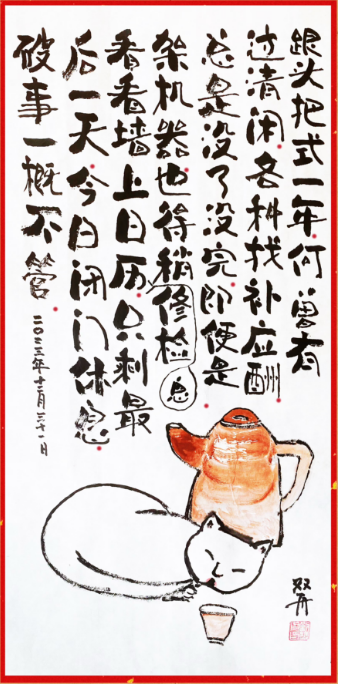 跟头把式一年何曾有
过清闲各种找补应酬
总是没了没完即便是
架机器也得稍修检
息
看看墙上日历只剩最
后一天今日闭门休息
破事一概不管
二〇二三年十二月三十一日